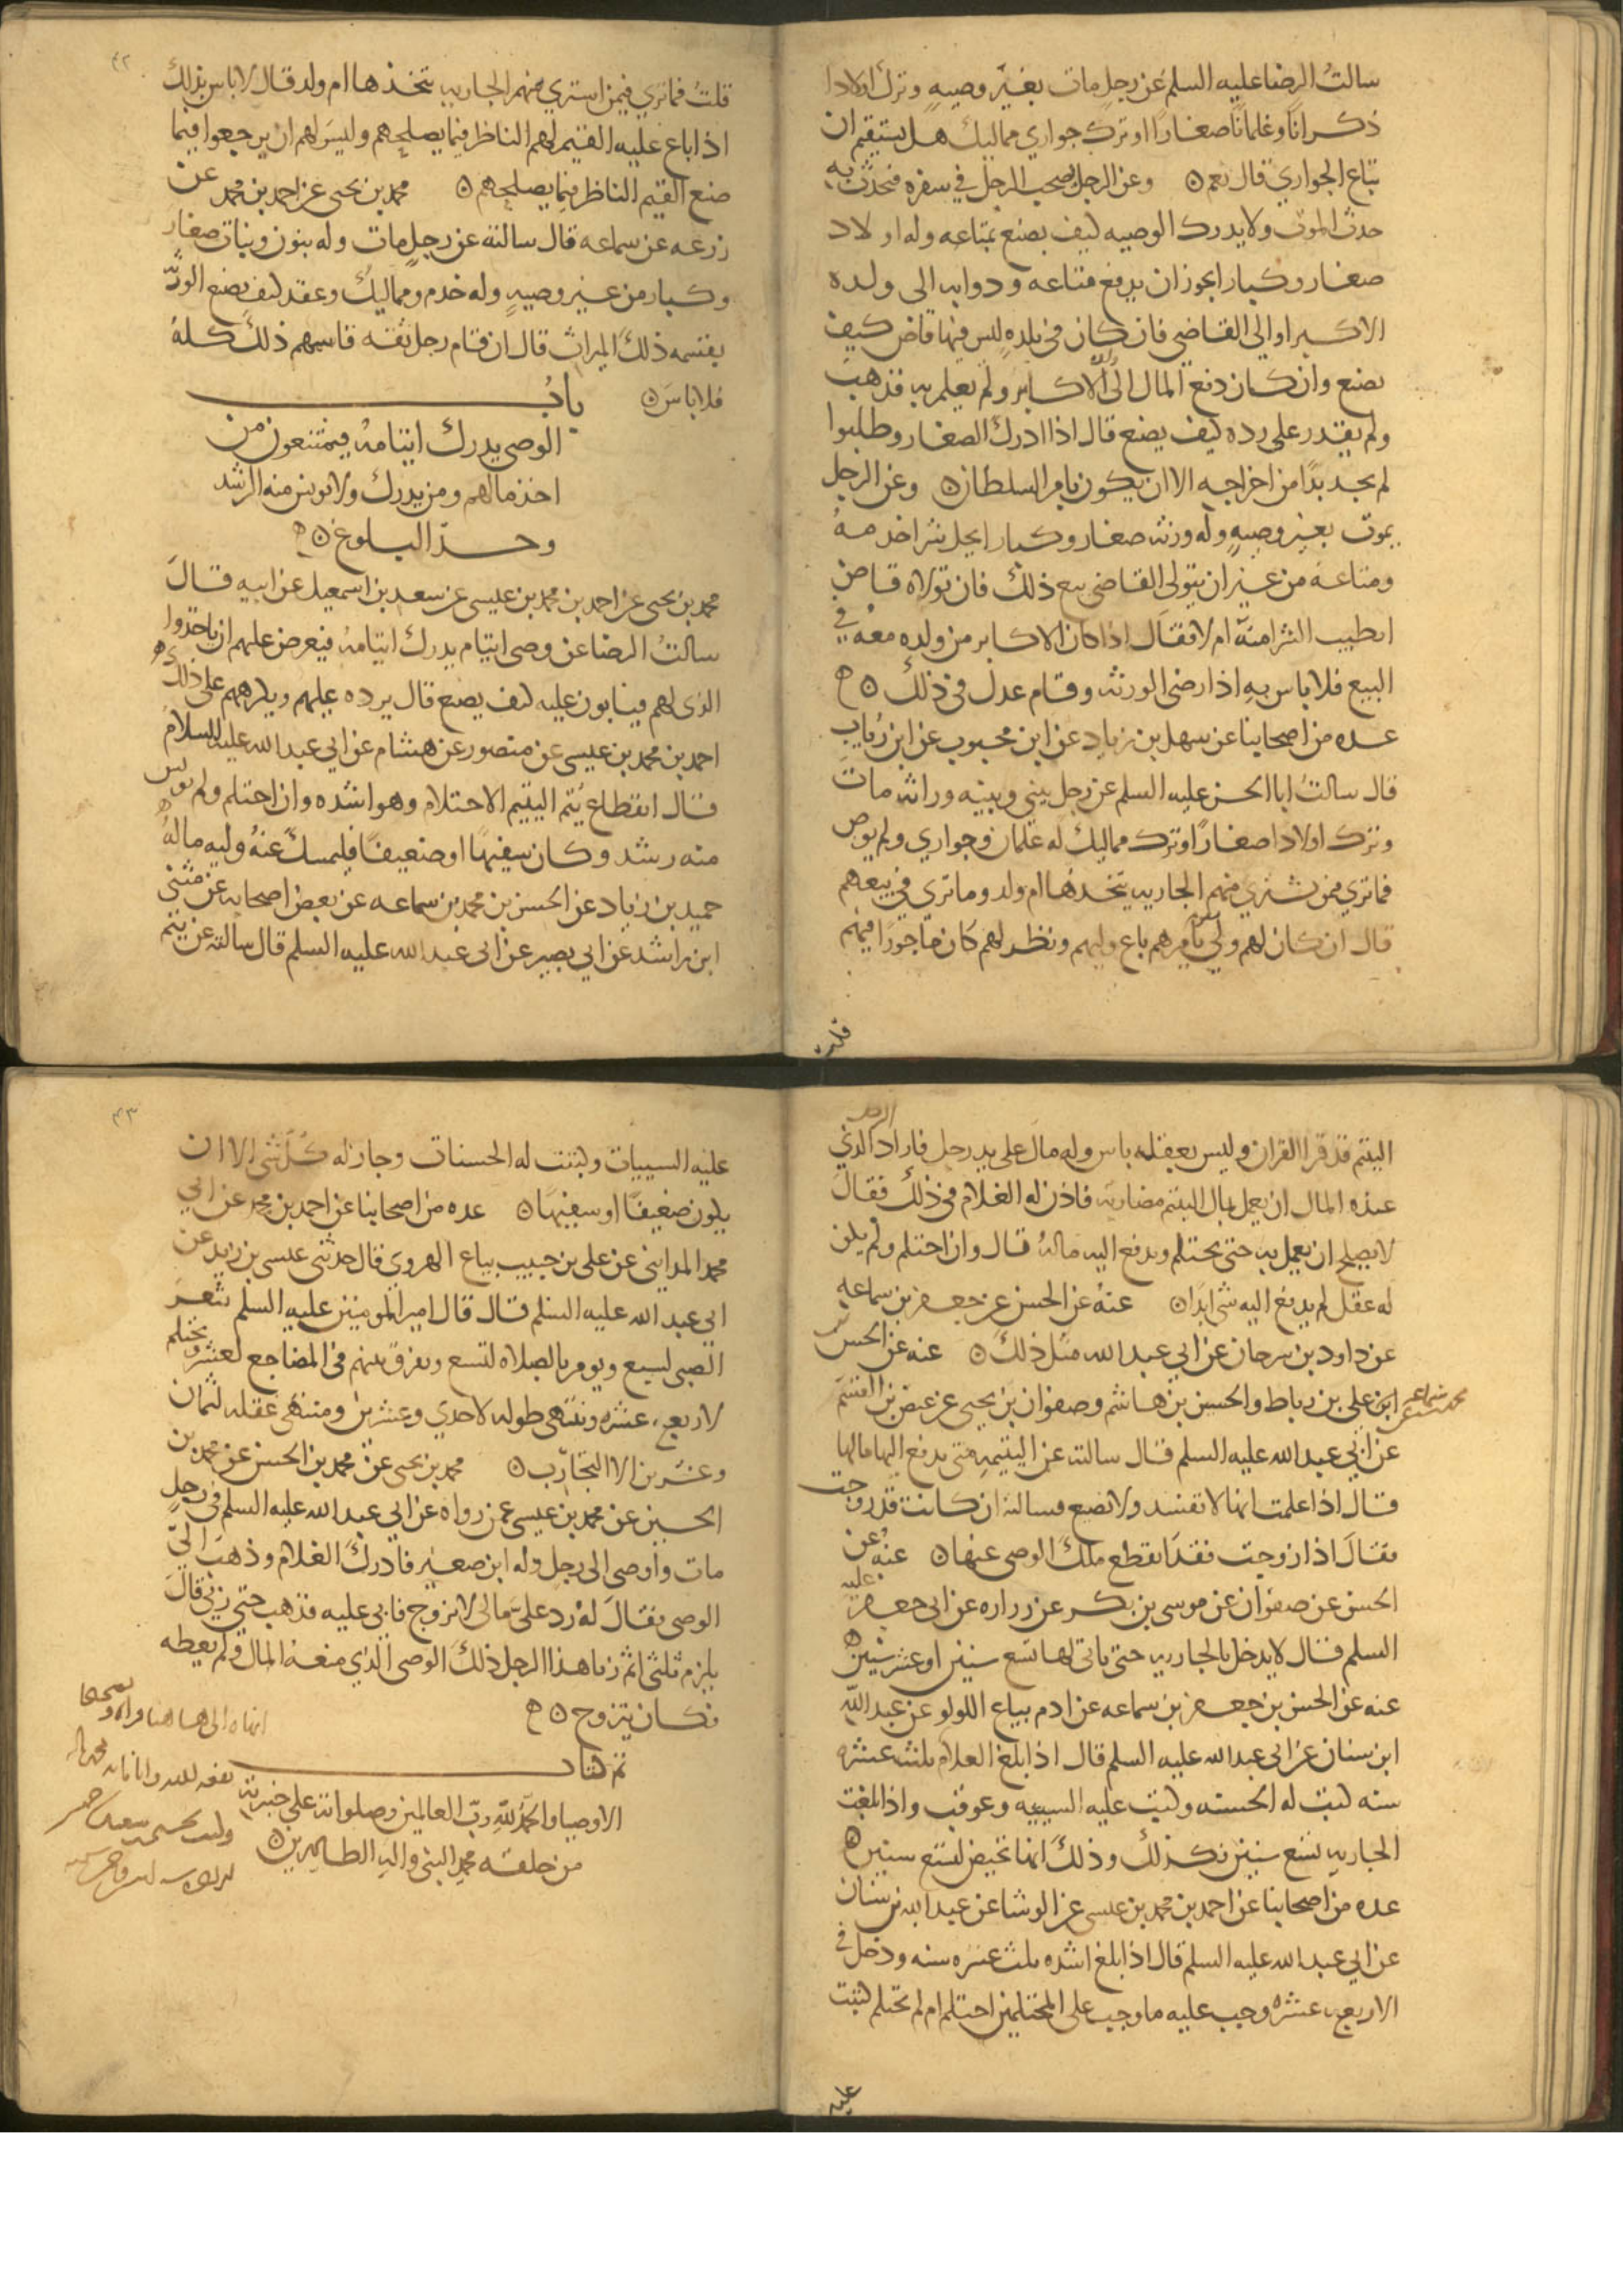 سالتُ الرضا عليه السلم عن رجل مات بغير وصيه وترك اولادا
ذكرانا وغلمانا صغارا او ترك جواري مماليك هل يستقيم ان
تباع الجواري قال نعم ه وعن الرجل يصحب الرجل في سفره فيحدث به
حدث الموت ولا يدرك الوصيه كيف يصنع بمتاعه وله اولاد
صغار وكبار ايجوز ان يدفع متاعه ودوابه الى ولده
الاكبر او الى القاضي فان كان في بلده ليس فيها قاض كيف
يصنع وان كان دفع المال الى الاكابر ولم يعلم به فذهب
ولم يقدر على رده كيف يصنع قال اذا ادرك الصغار وطلبوا
لم يجد بدّا من اخراجه الا ان يكون بامر السلطان ه وعن الرجل
يموت بغير وصيه وله ورثه صغار وكبار ايحل شرا خدمه
ومتاعه من غير ان يتولى القاضي بيع ذلك فان تولاه قاض
ايطيب الشرا منه ام لا فقال اذا كان الاكابر من ولده معه في
البيع فلا باس به اذا رضى الورثه وقام عدل في ذلك ه
عده من اصحابنا عن سهل بن زياد عن ابن محبوب عن ابن رياب
قال سالتُ ابا الحسن عليه السلم عن رجل بيني وبينه وراثه مات
وترك اولادا صغارا وترك مماليك له غلمان وجواري ولم يوص
فما تري فمن يشتري منهم الجاريه يتخذها ام ولد وما تري في بيعهم
قال ان كان لهم ولي يقوم بامرهم باع وليهم ونظر لهم كان ماجورا فيهم
قلت
٤٢
قلتُ فما تري فيمن اشتري منهم الجاريه يتخذها ام ولد قال لا باس بذلك
اذا باع عليه القيم لهم الناظر فيما يصلحهم وليس لهم ان يرجعوا فيما
صنع القيم الناظر فيما يصلحهم ه محمد بن يحيى عن احمد بن محمد عن
زرعه عن سماعه قال سالته عن رجل مات وله بنون وبنات صغار
وكبار من غير وصيه وله خدم ومماليك وعقد كيف يصنع الورثه
بقسمه ذلك الميراث قال ان قام رجل ثقه قاسمهم ذلك كله
فلا باس ه باب
الوصي يدرك ايتامه فيمتنعون من
اخذ مالهم ومن يدرك ولا يونس منه الرشد
وحد البلوغ ه
محمد بن يحيى عن احمد بن محمد بن عيسى عن سعد بن اسمعيل عن ابيه قال
سالتُ الرضا عن وصى ايتام يدرك ايتامه فيعرض عليهم ان ياخذوا
الذى لهم فيابون عليه كيف يصنع قال يرده عليهم ويكرههم على ذلك
احمد بن محمد بن عيسى عن منصور عن هشام عن ابي عبد الله عليه السلام
قال انقطاع يُتم اليتيم الاحتلام وهو اشده وان احتلم ولم يونس
منه رشد وكان سفيها او ضعيفا فليمسك عنه وليه ماله
حميد بن زياد عن الحسن بن محمد بن سماعه عن بعض اصحابه عن مثنى
ابن راشد عن ابي بصير عن ابى عبد الله عليه السلم قال سالته عن يتيم
اليتيم قد قرا القران وليس بعقله باس وله مال على يد رجل فاراد الذي
عنده المال ان يعمل بمال اليتيم مضاربه فاذن له الغلام في ذلك فقال
لا يصلح ان يعمل به حتى يحتلم ويدفع اليه ماله قال وان احتلم ولم يكن
له عقل لم يدفع اليه شى ابدا ه عنه عن الحسن عن جعفر بن سماعه
عن داود بن سرحان عن ابي عبد الله مثل ذلك ه عنه عن الحسن
ابن على بن رباط والحسين بن هاشم وصفوان بن يحيى عن عيص بن القسم
عن ابي عبد الله عليه السلم قال سالته عن اليتيمه متى يدفع اليها مالها
قال اذا علمت انها لا تفسد ولا تضيع فسالته ان كانت قد زوجت
فقال اذا زوجت فقد انقطع ملك الوصي عنها ه عنه عن
الحسن عن صفوان عن موسى بن بكر عن زراره عن ابي جعفر عليه
السلم قال لا يدخل بالجاريه حتى ياتي لها تسع سنين او عشر سنين ه
عنه عن الحسن بن جعفر بن سماعه عن ادم بياع اللولو عن عبد الله
ابن سنان عن ابى عبد الله عليه السلم قال اذا بلغ الغلام ثلث عشره
سنه كتبت له الحسنه وكتبت عليه السييه وعوقب واذا بلغت
الجاريه تسع سنين فكذلك وذلك انها تحيض لتسع سنين ه
عده من اصحابنا عن احمد بن محمد بن عيسى عن الوشا عن عبد الله بن سنان
عن ابي عبد الله عليه السلم قال اذا بلغ اشده ثلث عشره سنه ودخل في
الاربع عشره وجب عليه ما وجب على المحتلمين احتلم ام لم يحتلم كتبت
عليه
٤٣
عليه السييات وكتبت له الحسنات وجاز له كل شى الا ان
يكون ضعيفا او سفيها ه عده من اصحابنا عن احمد بن محمد عن ابي
محمد المدايني عن على بن حبيب بياع الهروى قال حدثني عيسى بن زيد عن
ابى عبد الله عليه السلم قال قال امير المومنين عليه السلم يثغر
الصبى لسبع ويومر بالصلاه لتسع ويفرق بينهم في المضاجع لعشر ويحتلم
لاربع عشره وينتهى طوله لاحدي وعشرين ومنتهى عقله لثمان
وعشرين الا التجارب ه محمد بن يحيى عن محمد بن الحسن عن محمد بن
الحسين عن محمد بن عيسى عمن رواه عن ابي عبد الله عليه السلم في رجل
مات واوصى الى رجل وله ابن صغير فادرك الغلام وذهب الى
الوصي فقال له رد على مالى لاتزوج فابى عليه فذهب حتى زني قال
يلزم ثلثى اثم زنا هذا الرجل ذلك الوصي الذي منعه المال ولم يعطه
فكان يتزوج ه
تم كتاب
الاوصيا والحمد لله رب العالمين وصلواته على خيرته
من خلقه محمد النبي واله الطاهرين ه